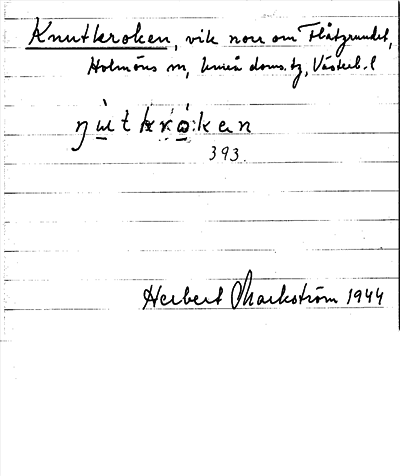 Knutkroken, vik norr om Flåtgrundet,
Holmöns sn, Umeå doms.tg, Västerb. l
ŋu̲tkrо̲:kən
393.
Herbert Markström 1944